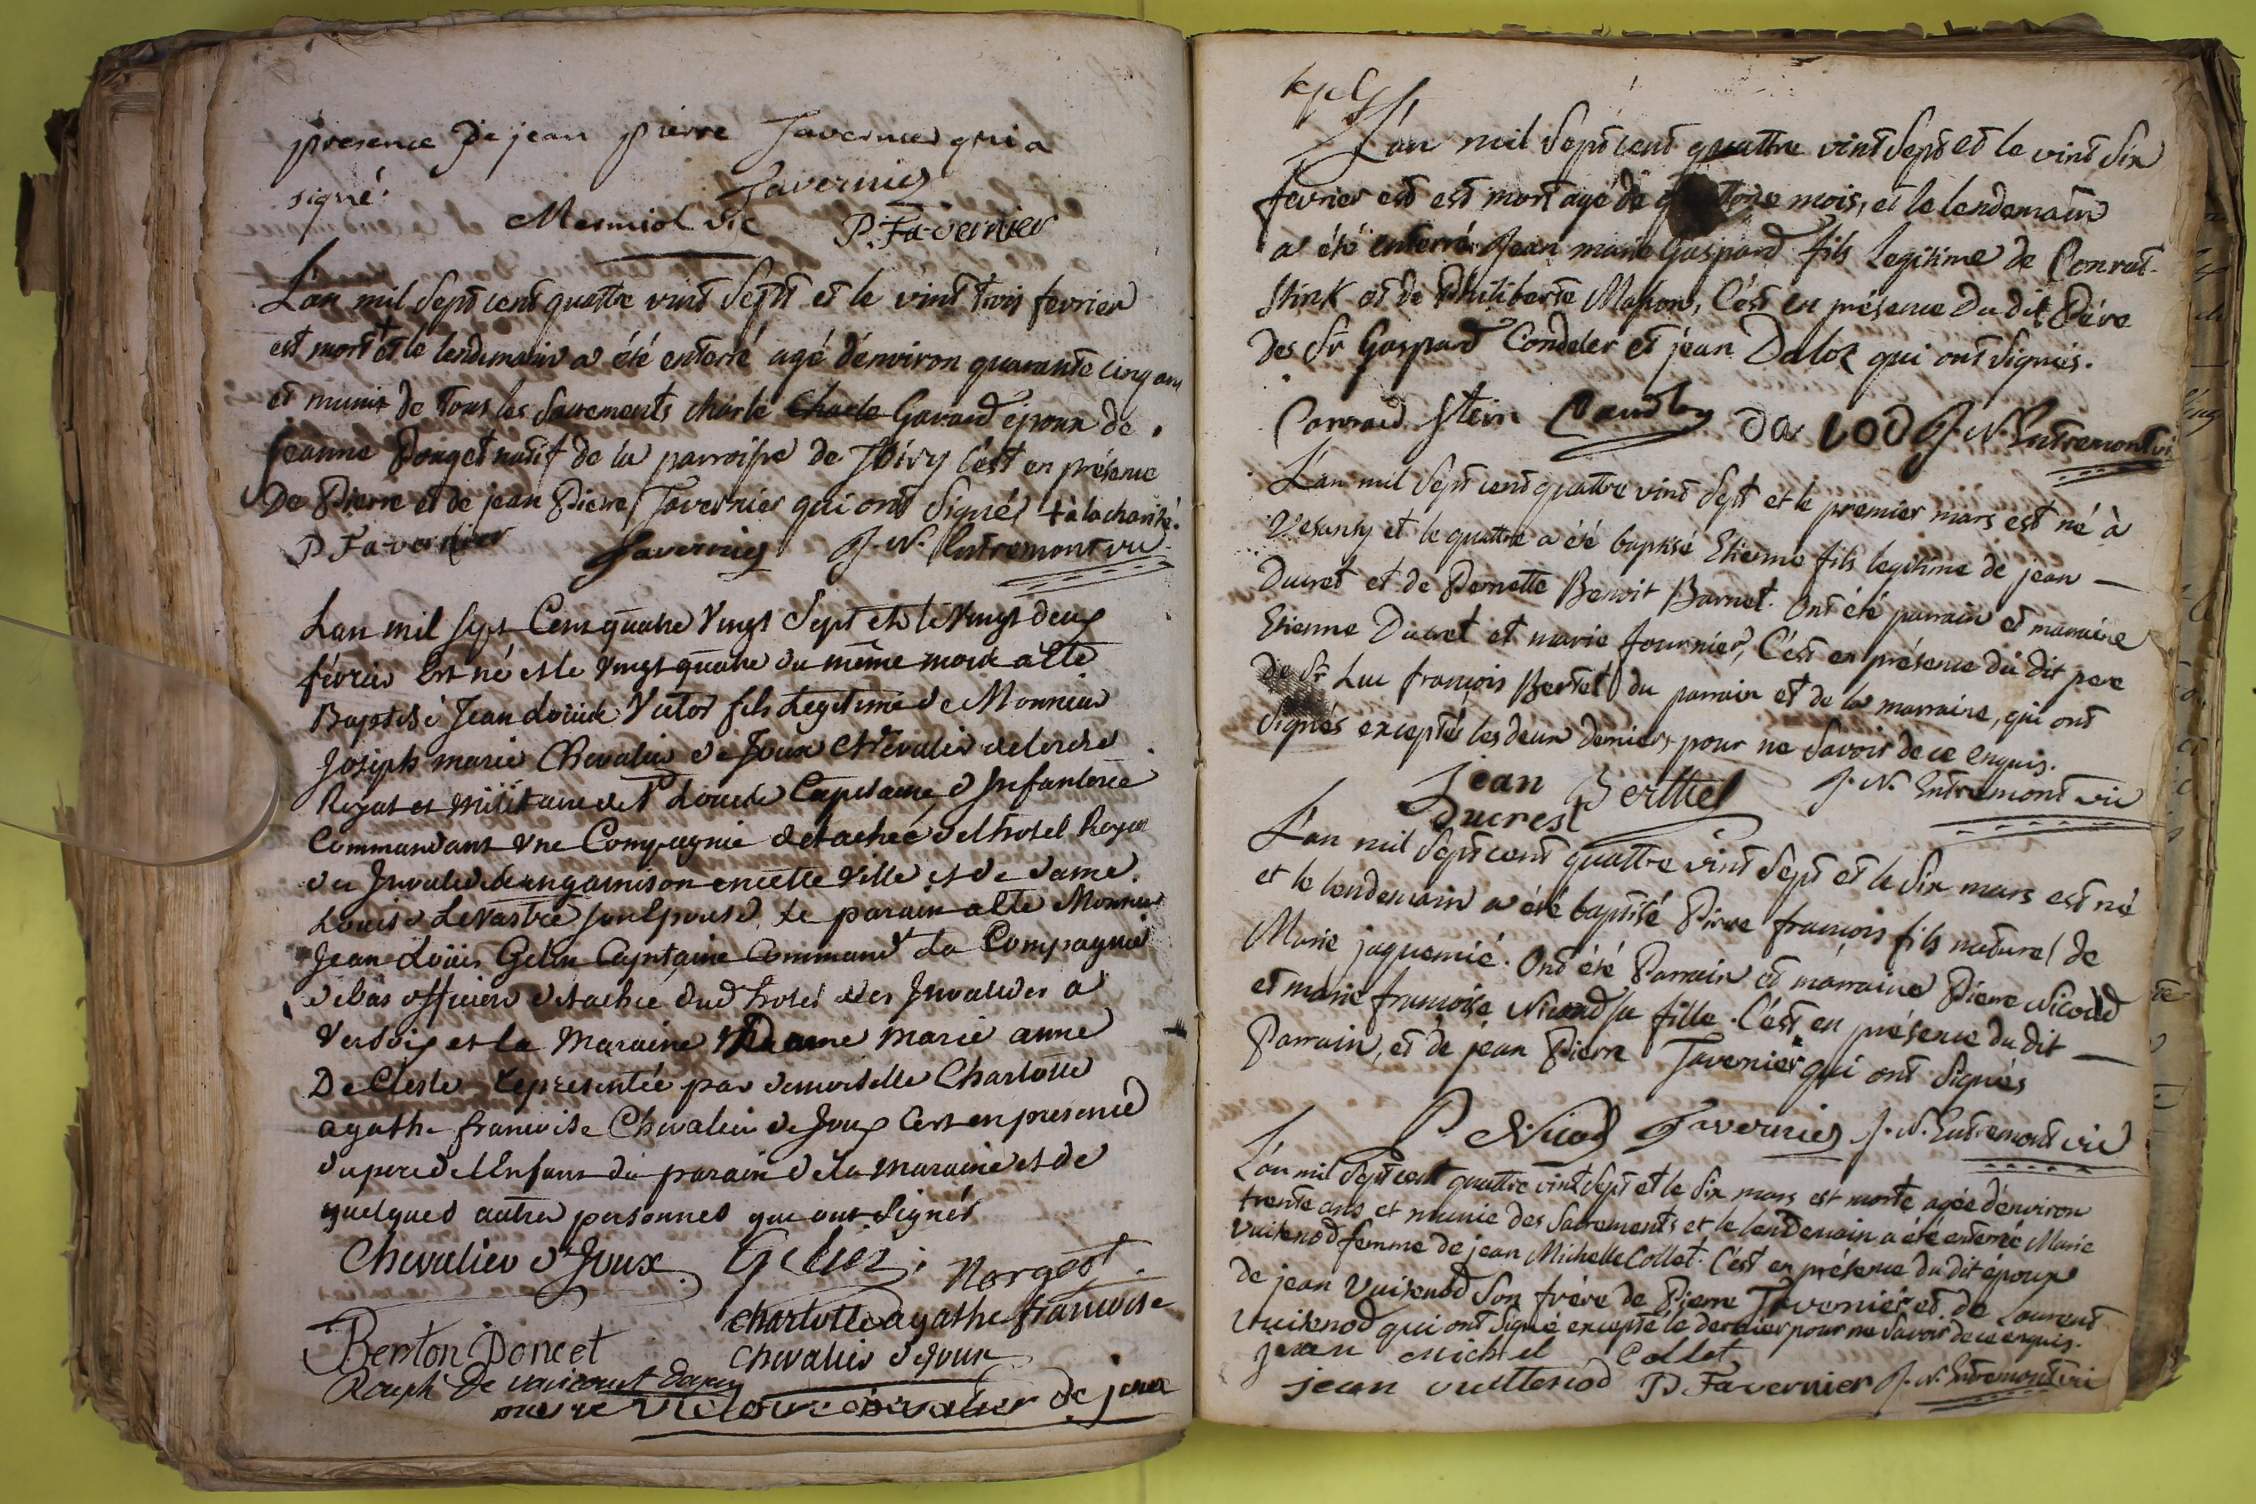 presence de jean pierre Tavernier qui a
signé.
Tavernier
Mermiol vic P. Favernier
L'an mil sept cent quattre vint sept et le vint trois fevrier
est mort et le lendemain a été enterré agé d'environ quarante cinq ans
et munit de tous les sacrements charle Charle Gavard époux de
jeanne Pouget natif de la parroisse de Thivy c'est en présence
De Pierre et de jean Pierre Tavernier qui ont signés + à la charité.
P Favernier Tavernier J. N. Entremont vic
Lan mil sept Cent quatre Vingt Sept et le Vingt deux
février Est né et le Vingt quatre du même mois a été
Baptisé Jean Loüis Victor fils Legitime de Monsieur
Joseph marie Chevalier de Joux Chevalier de lordre
Royal et militaire de St Louis Capitaine d'Infanterie
Commandant Une Compagnie detachée de l'hotel Royal
des Invalides en garnison en cette Ville et de dame
Louise Levastre son Epouse. Le parain a été Monsieur
Jean Loüis Gelin Capitaine Command.t La Compagnie
de bas officiers detachée dud hotel des Invalides a
Versoix et la Maraine Dame Marie anne
De Clesle représentée par demoiselle Charlotte
agathe francoise Chevalier de Joux C'est en presence
du pere de l'Enfant du parain de la maraine et de
quelques autres personnes qui ont Signés
Chevalier d Joux Gelin Norgeot
Charlotte agathe francoise
Berton Poncet Chevalier de Joux
Chevalier de joux
L'an mil sept cent quattre vint sept et le vint six
fevrier est est mort agé de mois, et le lendemain
a été enterré Jean marie Gaspard fils legitime de Conrat
Stink et de Philiberte Mahon, C'est en présence du dit Pére
des Sr Gaspard Condeler et jean Daloz qui ont signés.
Conrad Stein Da LOD J. N. Entremont vi
L'an mil sept cent quattre vint sept et le premier mars est né à
Vesancy et le quattre a été baptisé Etienne fils legitime de jean
Ducret et de Pernette Benoit Barnet. Ont été parrain et marraine
Etienne Ducret et marie fournier, C'est en présence du dit pere
de Sr Luc françois Bertet du parrain et de la marraine, qui ont
signés exceptés les deux derniers pour ne savoir de ce enquis.
jean Berthet J. N. Entremont vic
Ducrest
L'an mil sept cent quattre vint sept et le six mars est né
et le lendemain a été baptisé Pierre francois fils naturel de
Marie jaquemié. Ont été Parrain et marraine Pierre Nicoud
et marie françoise Nicoud sa fille. C'est en présence du dit
Parrain, et de jean Pierre Tavernier qui ont signés
P. Nicod Tavernier J. N. Entremont vic
L'an mil sept cent quattre vint sept et le six mars est morte agée d'environ
trente ans et munie des sacrements et le lendemain a été enterrée Marie
Vuitenod femme de jean Michelle Collet. C'est en présence du dit époux
de jean Vuitenod son frére de Pierre Tavernier et de Laurent
Vuitenod qui ont signé excepté le dernier pour ne savoir de ce enquis.
jean michel Collet
jean vuittenod P. Favernier J. N. Entremont vi